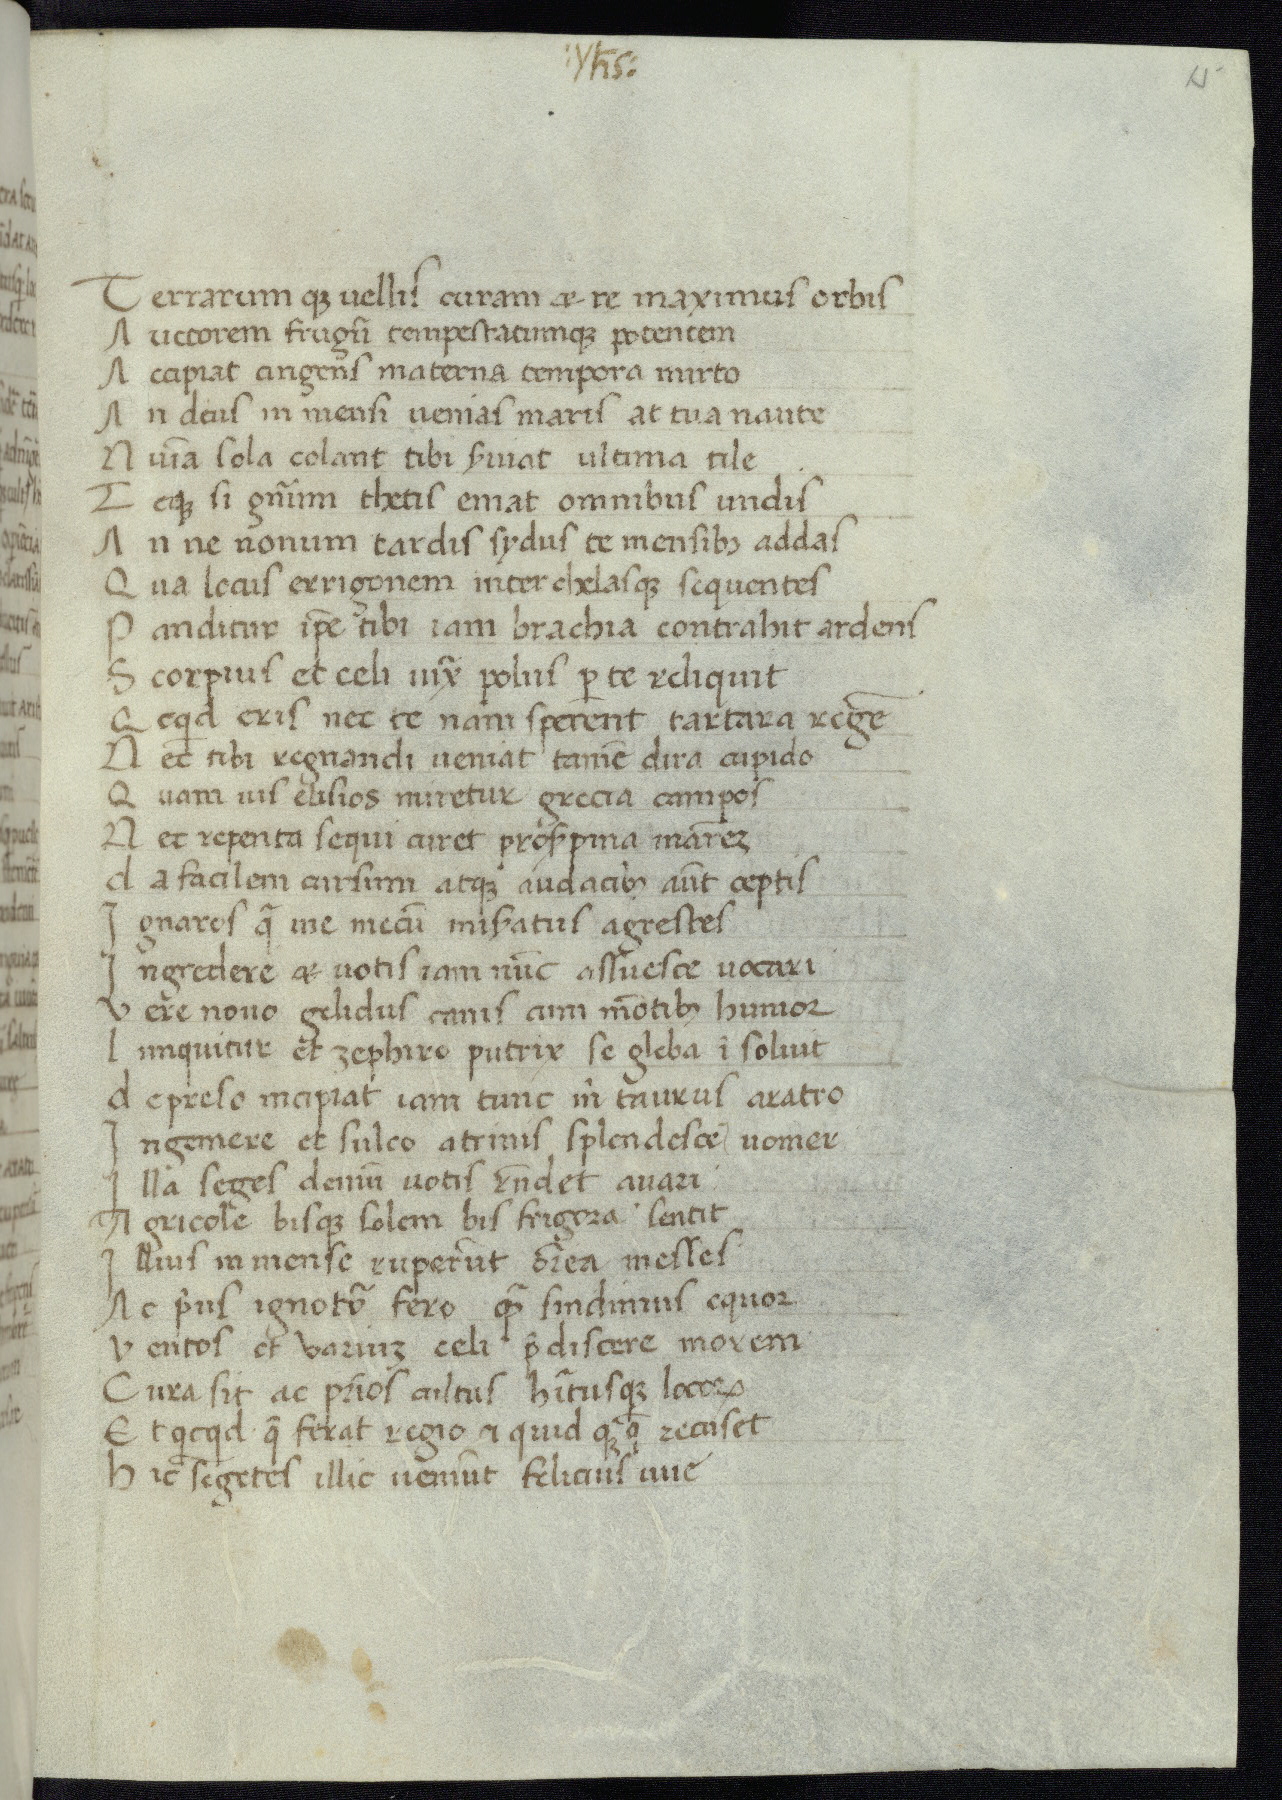 :yħs:
15
Terrarum qꝫ uellis curam & te maximus orbis
Auctorem frugū tempestatumqꝫ potentem
Accipiat cingens materna tempora mirto
An deus in mensi uenias maris at tua naute
Nuīa sola colant tibi ſ̄uiat ultima tile
Teqꝫ si gn̄um thetis emat omnibus undis
An ne nouum tardis sydus te mensibꝫ addas
Qua locus errigonem inter chelasqꝫ sequentes
Panditur ip̄e tibi iam brachia contrahit ardens
Scorpius et celi iux̄ polus ꝑte reliquit
Qcqd eris nec te nam sperent tartara regē
Nec tibi regnandi ueniat tamē dira cupido
Quam uis elisios miretur grecia campos
Nec repetita sequi curet prosꝑpina mat̄rēꝫ
da facilem cursum atqꝫ audacibꝫ aūt ceptis
Ignaros q̄ uie mecū misꝑatus agrestes
Ingredere & uotis iam nūc assuesce uocari
vere nouo gelidus canis cum mōtibꝫ humor
linquitur et zephiro putrix se gleba ī soluit
depreso incipiat iam tunc m̄ taurus aratro
Ingemere et sulco atritus splendesce uomer
Illa seges demū uotis rn̄det auari
Agricole bisqꝫ solem bis frigora sentit
Illius inmense ruperūt orrea messes
Ac p̄us ignotū fero qm̄ findimus equor
ventos et variuꝫ celi p̄discere morem
Cura sit ac pr̄ios cultus hītusqꝫ locoꝝ
Et qcqd q̄ ferat regio & quid qꝫ q̄ recuset
hic segetes illic ueniūt felicius uue